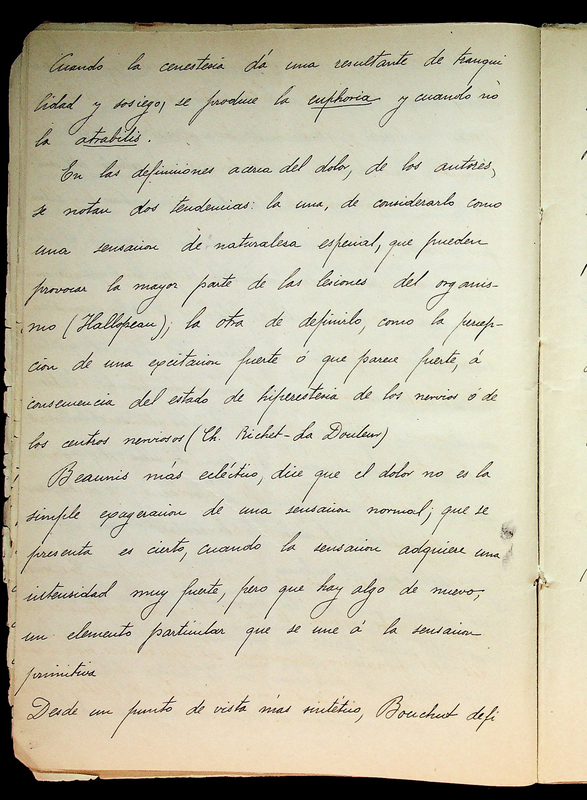 Cuando la cenestesia dá una resultante de tranqui
lidad y sosiego, se produce la euphoria y cuando nó
la atrabilis.
En las definiciones acerca del dolor, de los autores,
se notan dos tendencias: la una, de considerarlo como
una sensacion de naturalesa especial, que pueden
provocar la mayor parte de las lesiones del organis-
mo (Hallopeau); la otra de definirlo, como la percep-
cion de una excitacion fuerte ó que parece fuerte, á
consecuencia del estado de hiperestesia de los nervios ó de
los centros nerviosos (Ch. Richet-La Douleur)
Beaunis más ecléctico, dice que el dolor no es la
simple exageracion de una sensacion normal; que se
presenta es cierto, cuando la sensacion adquiere una
intensidad muy fuerte, pero que hay algo de nuevo,
un elemento particular que se une á la sensacion
primitiva
Desde un punto de vista más sintético, Bouchut defi